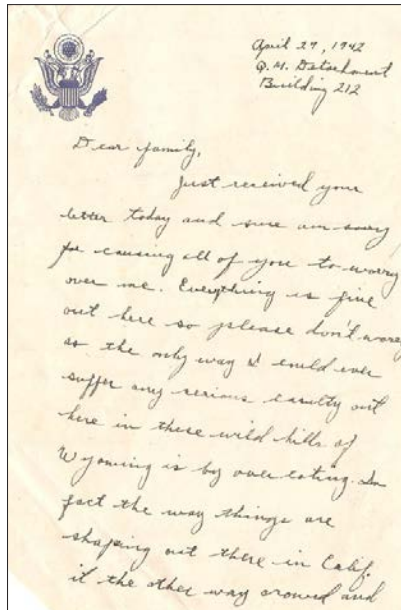 April 29, 1942
Q.M. Detachment
Building 212
Dear family,
Just received your
letter today and sure am sorry
for causing all of you to worry
over me. Everything is fine
out here so please don't worry
as the only way I could ever
suffer any serious casulty out
here in these wild hills of
Wyoming is by over eating. In
fact the way things are
shaping out there in Calif.
it the other way around and